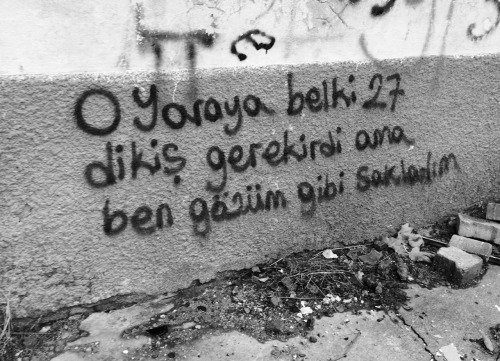 O yaraya belki 27
dikiş gerekirdi ama
ben gözüm gibi sakladım